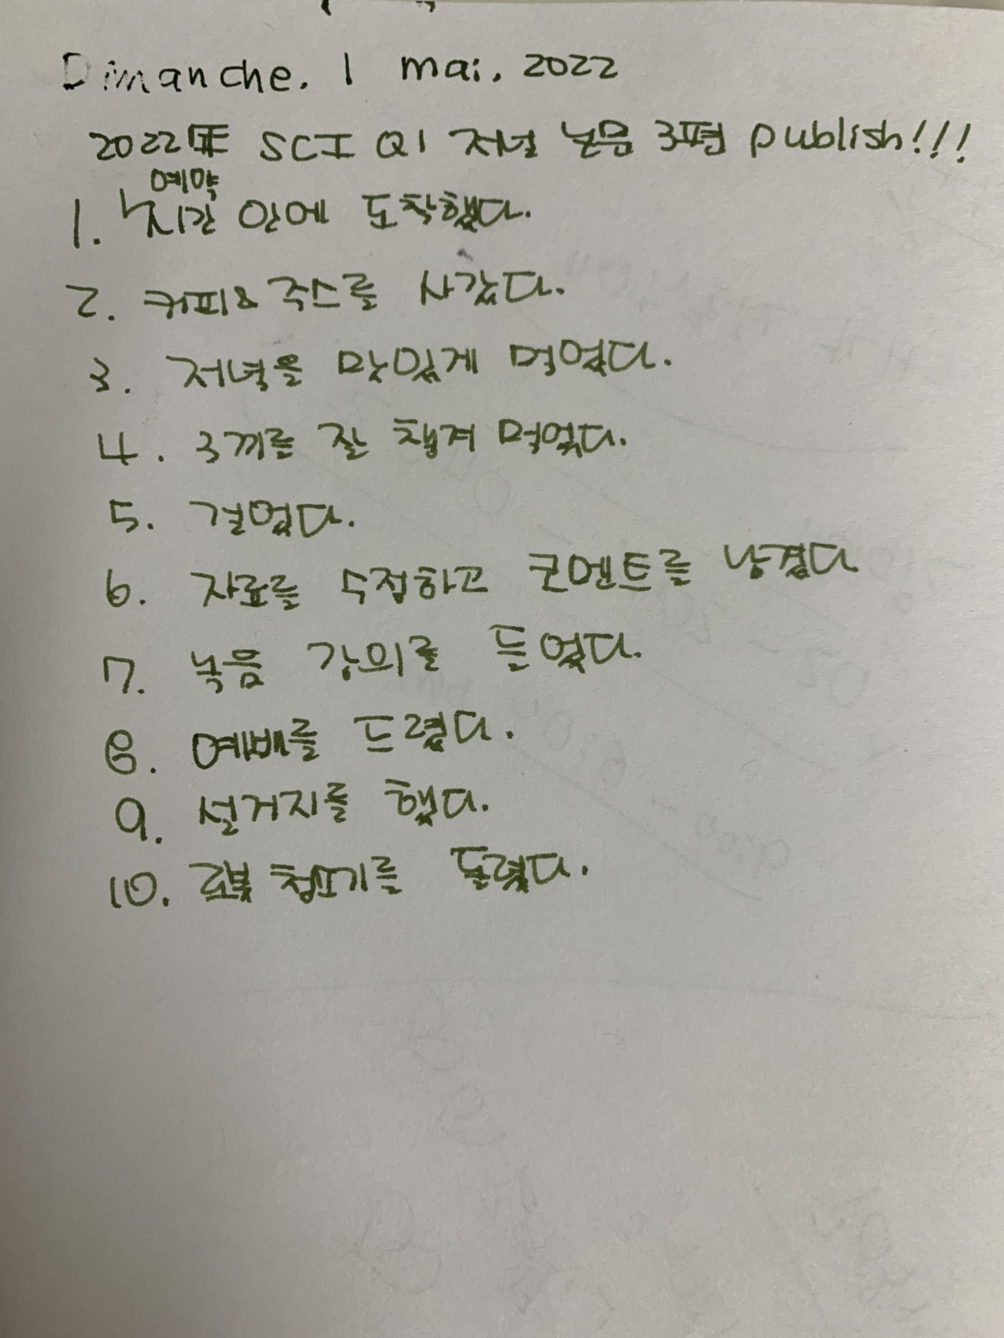 Dimanche. 1 mai. 2022
2022年 SCI Q1 저널 논문 3편 publish!!!
1. 예약 시간 안에 도착했다.
2. 커피&주스를 사갔다.
3. 저녁을 맛있게 먹었다.
4. 3끼를 잘 챙겨 먹었다.
5. 걸었다.
6. 자료를 수정하고 코멘트를 남겼다
7. 녹음 강의를 들었다.
8. 예배를 드렸다.
9. 설거지를 했다.
10. 로봇 청소기를 돌렸다.